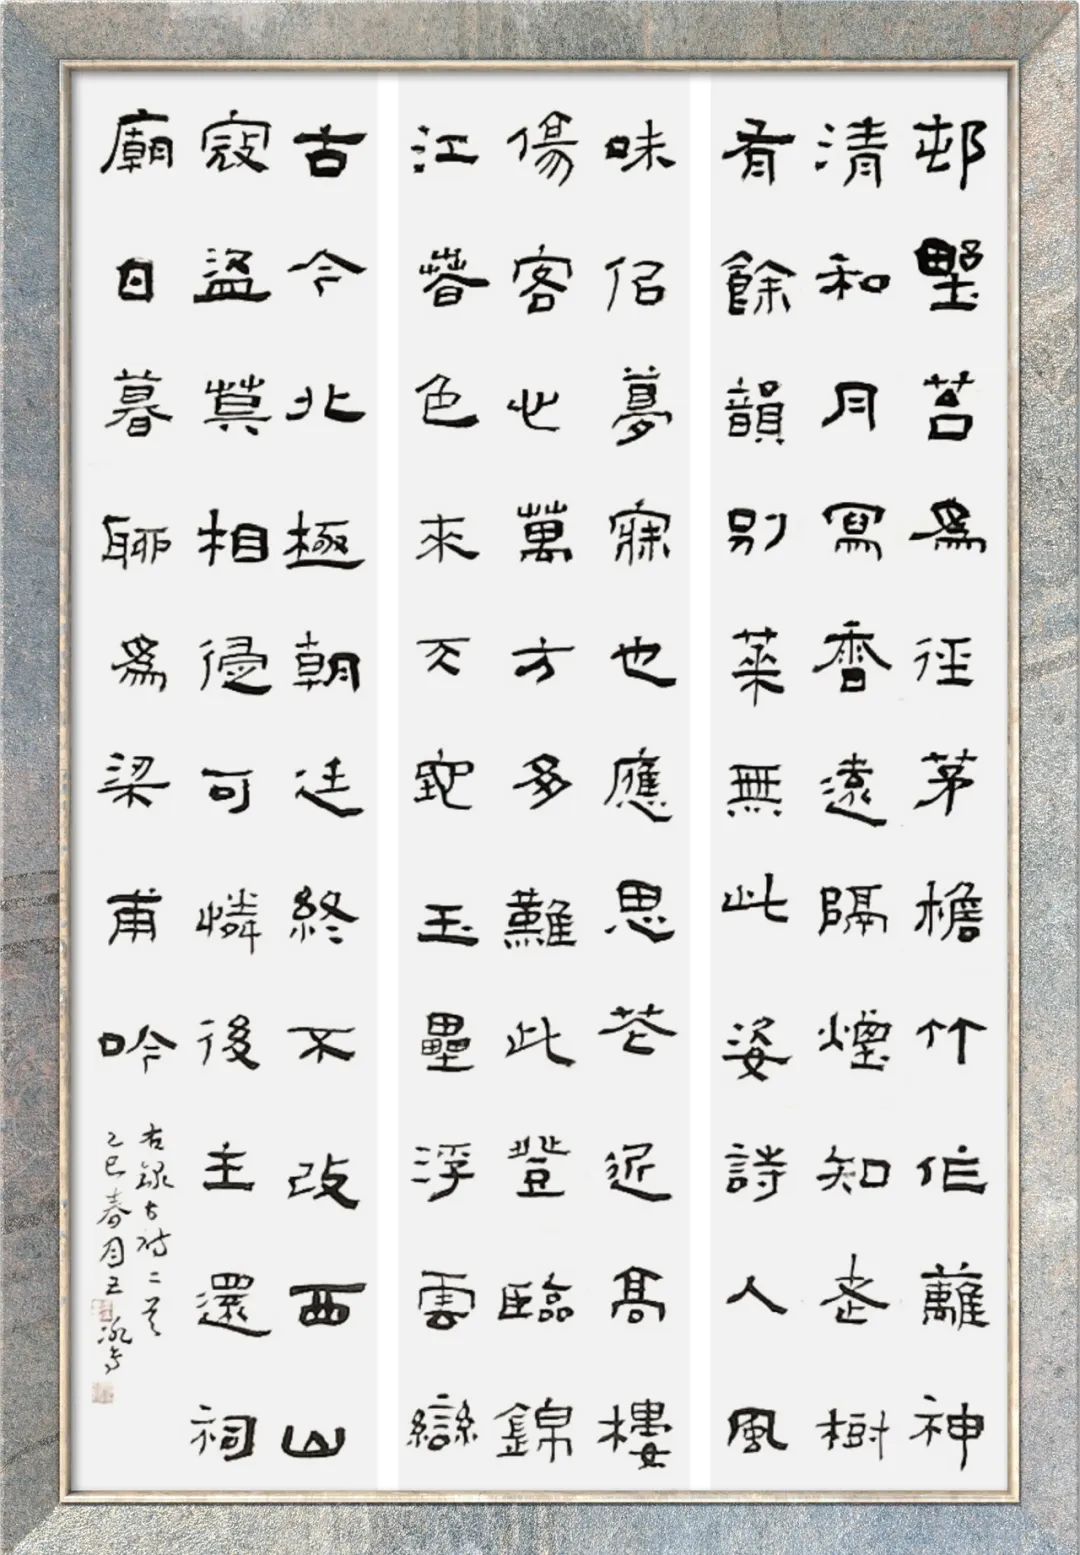 邨墅苔爲徑茅檐竹作蘺神
清和月寫香遠隔煙知老樹
有餘韻別華無此姿詩人風
味佀夢寐也應思花近高樓
傷客心萬方多難此登臨錦
江春色來天地玉壘浮雲變
古今北極朝廷終不改西山
寇盜莫相侵可憐後主還祠
廟日暮聊爲梁甫吟
右錄古詩二首
乙巳春月